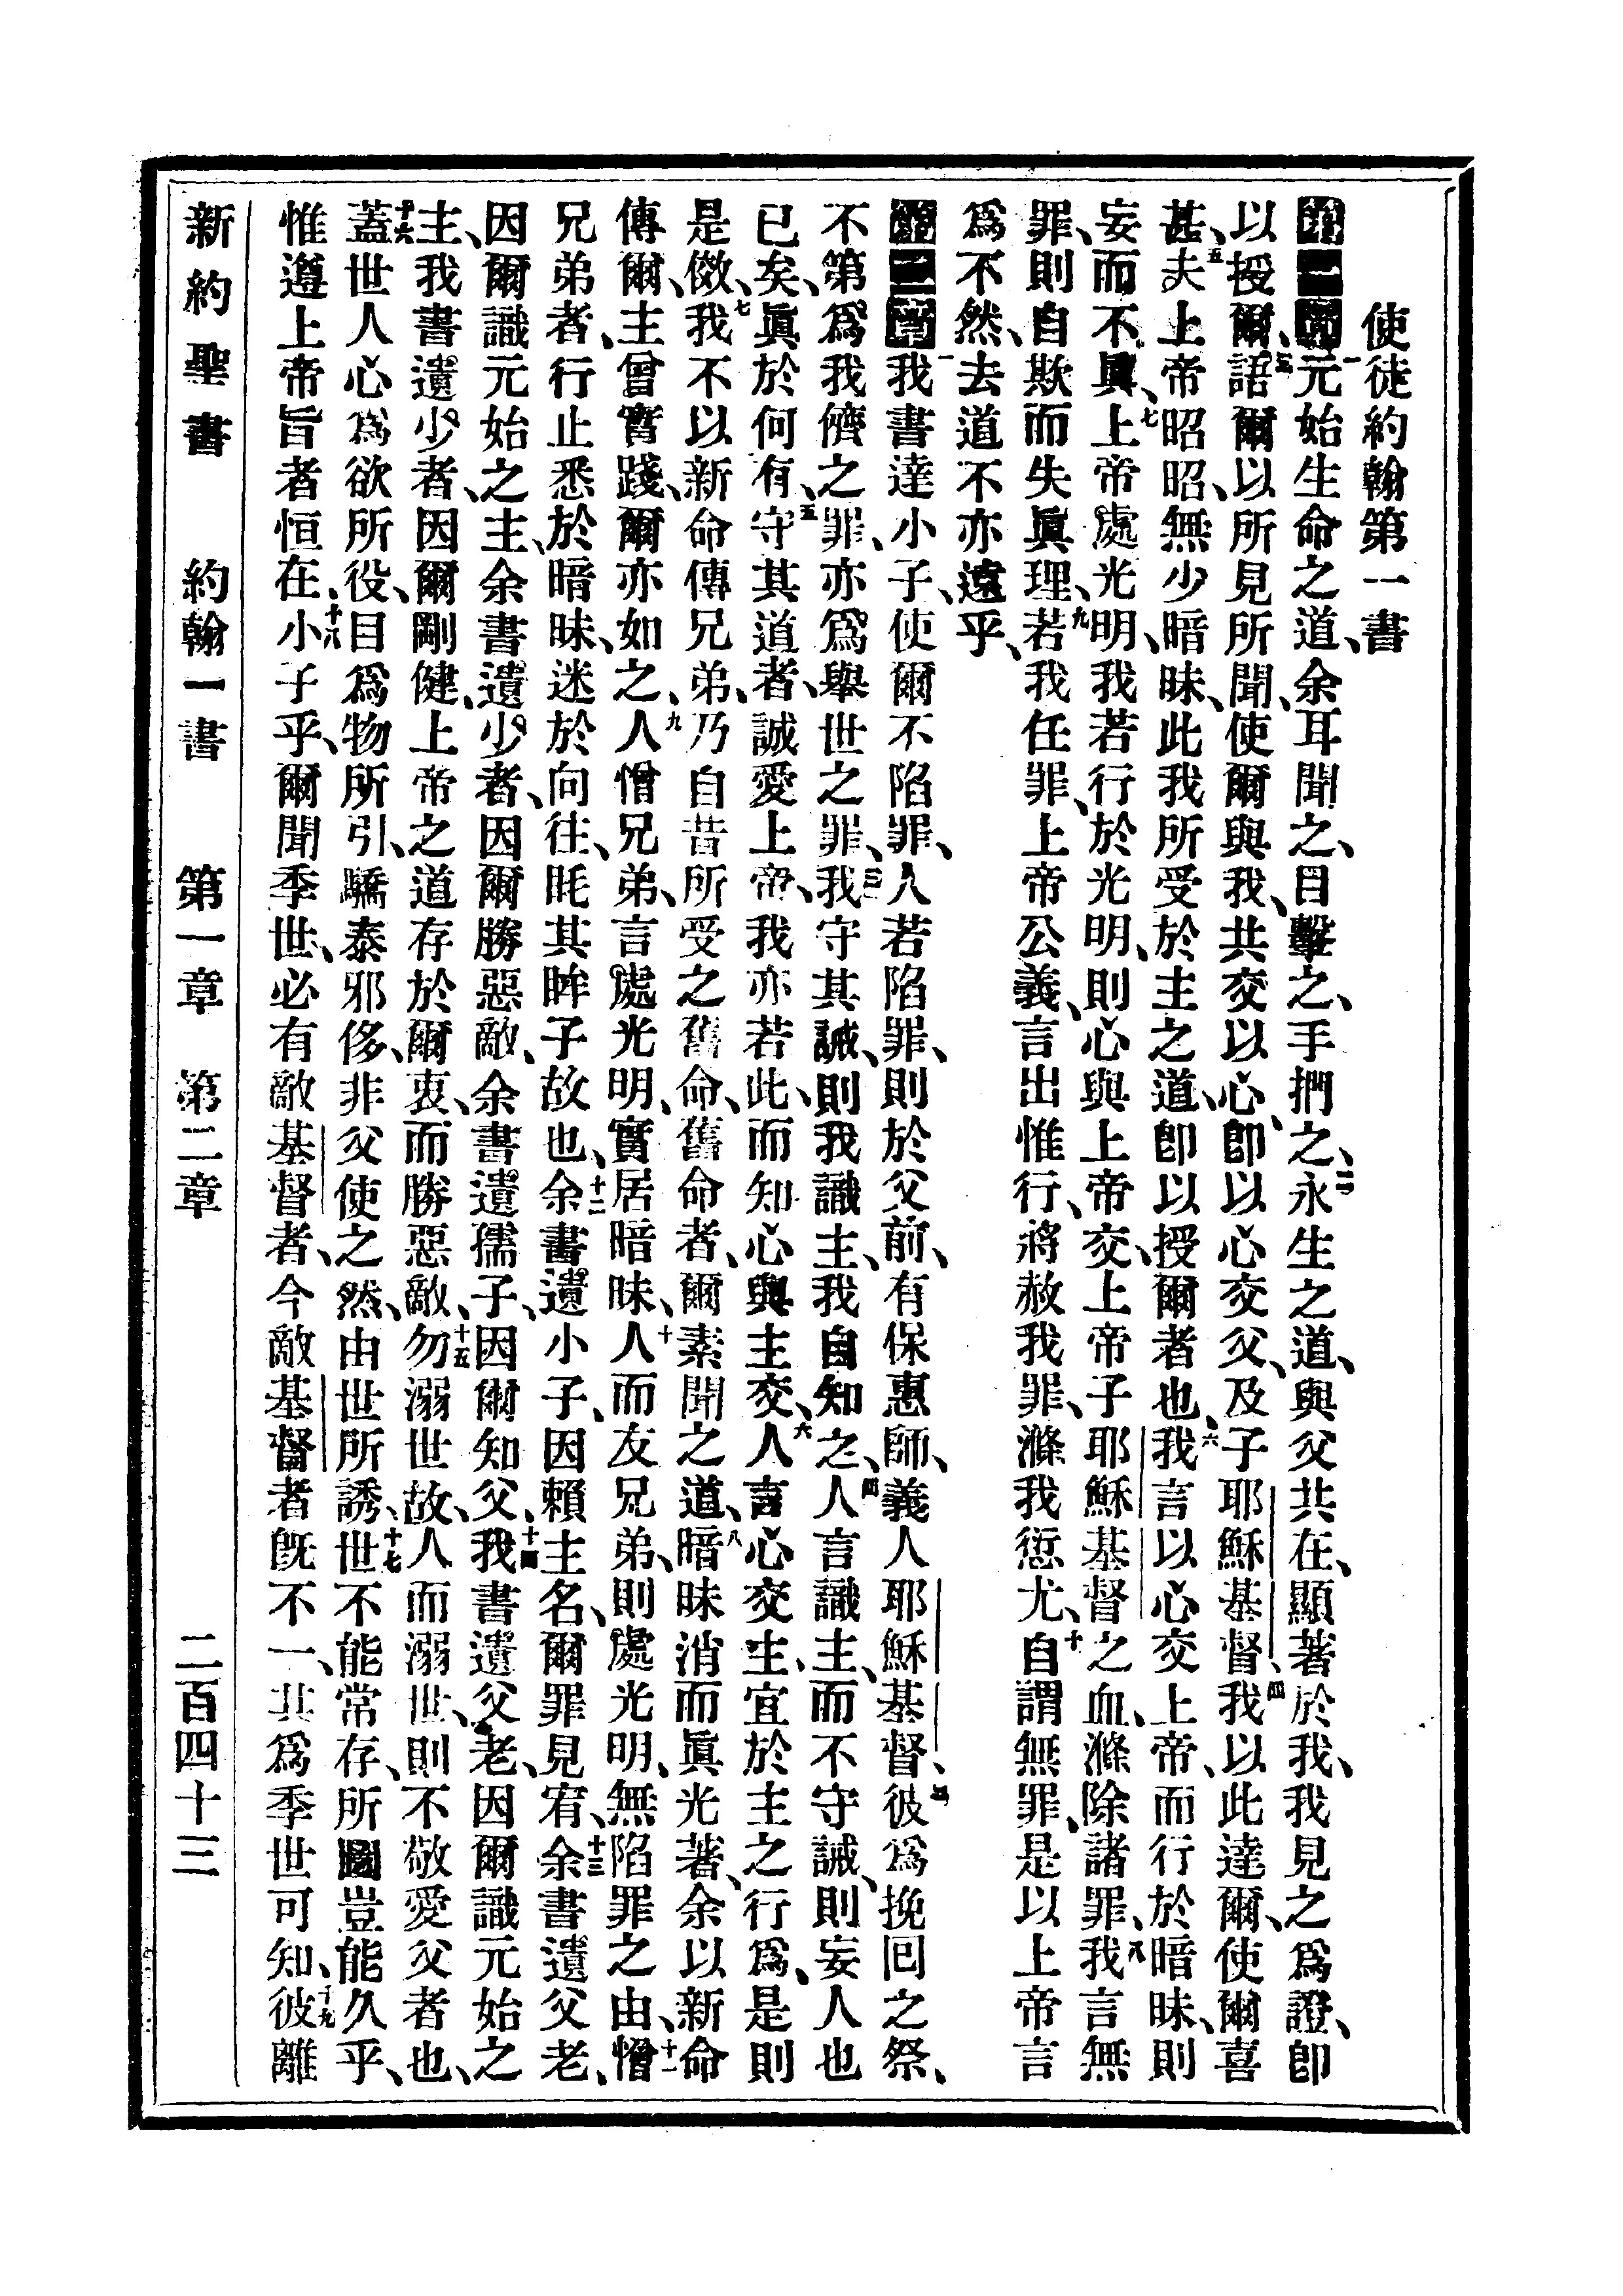 使徒約翰第一書
第一章一元始生命之道、余耳聞之、目擊之、手捫之、二永生之道、與父共在、顯著於我、我見之爲證、卽
以授爾、三語爾以所見所聞、使爾與我、共交以心、卽以心交父、及子耶穌基督、四我以此達爾、使爾喜
甚、五夫上帝昭昭、無少暗昧、此我所受於主之道、卽以授爾者也、六我言以心交上帝、而行於暗昧、則
妄而不眞、七上帝處光明、我若行於光明、則心與上帝交、上帝子耶穌基督之血、滌除諸罪、八我言無
罪、則自欺而失眞理、九若我任罪、上帝公義、言出惟行、將赦我罪、滌我愆尤、十自謂無罪、是以上帝言
爲不然、去道不亦遠乎、
第二章一我書達小子、使爾不陷罪、人若陷罪、則於父前、有保惠師、義人耶穌基督、二彼爲挽回之祭、
不第爲我儕之罪、亦爲舉世之罪、三我守其誡、則我識主、我自知之、四人言識主、而不守誡、則妄人也
已矣、眞於何有、五守其道者、誠愛上帝、我亦若此、而知心與主交、六人言心交生、宜於主之行爲、是則
是傚、七我不以新命傳兄弟、乃自昔所受之舊命、舊命者、爾素聞之道、八暗昧消而眞光著、余以新命
傳爾、主曾實踐、爾亦如之、九人憎兄弟、言處光明、實居暗昧、十人而友兄弟、則處光明、無陷罪之由、十一憎
兄弟者、行止悉於暗昧、迷於向往、眊其眸子故也、十二余書遺小子、因賴主名、爾罪見宥、十三余書遺父老、
因爾識元始之主、余書遺少者、因爾勝惡敵、余書遺孺子、因爾知父、十四我書遺父老、因爾識元始之
主、我書遺少者、因爾剛健、上帝之道存於爾衷、而勝惡敵、十五勿溺世故、人而溺世、則不敬愛父者也、
十六蓋世人心爲欲所役、目爲物所引、驕泰邪侈、非父使之然、由世所誘、十七世不能常存、所圖豈能久乎、
惟遵上帝旨者恒在、十八小子乎、爾聞季世、必有敵基督者、今敵基督者旣不一、其爲季世可知、十九彼離
新約聖書 約翰一書 第一章 第二章 二百四十三